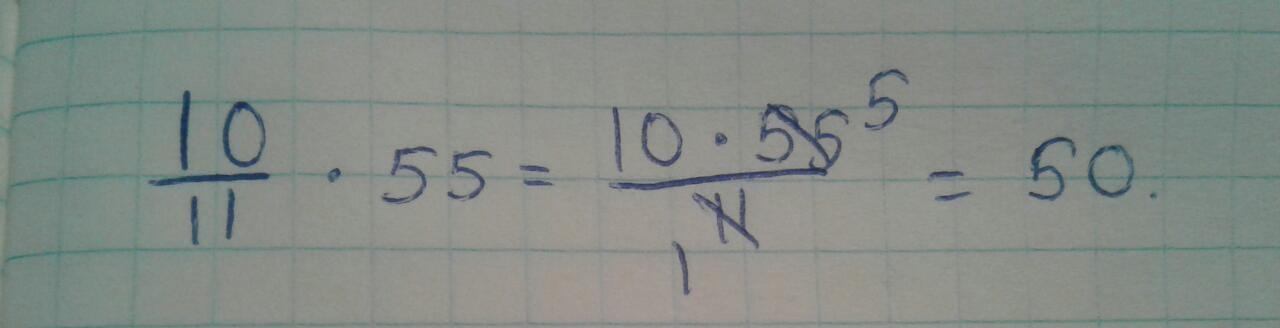 10/11 · 55 = 10 · 55 5 / 11 1 = 50.